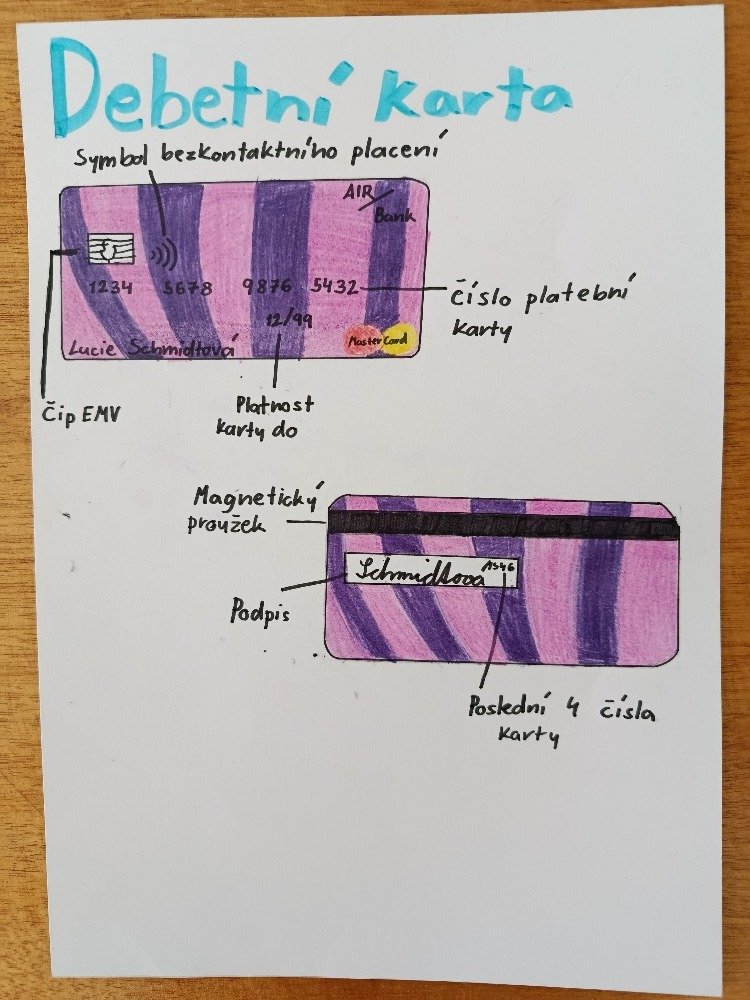 Debetní karta
Symbol bezkontaktního placení
AIR
Bank
1234 5678 9876 5432
číslo platební
karty
12/99
Lucie Schmidtová
MasterCard
Čip EMV
Platnost
karty do
Magnetický
proužek
Schmidtova 1546
Podpis
Poslední 4 čísla
karty